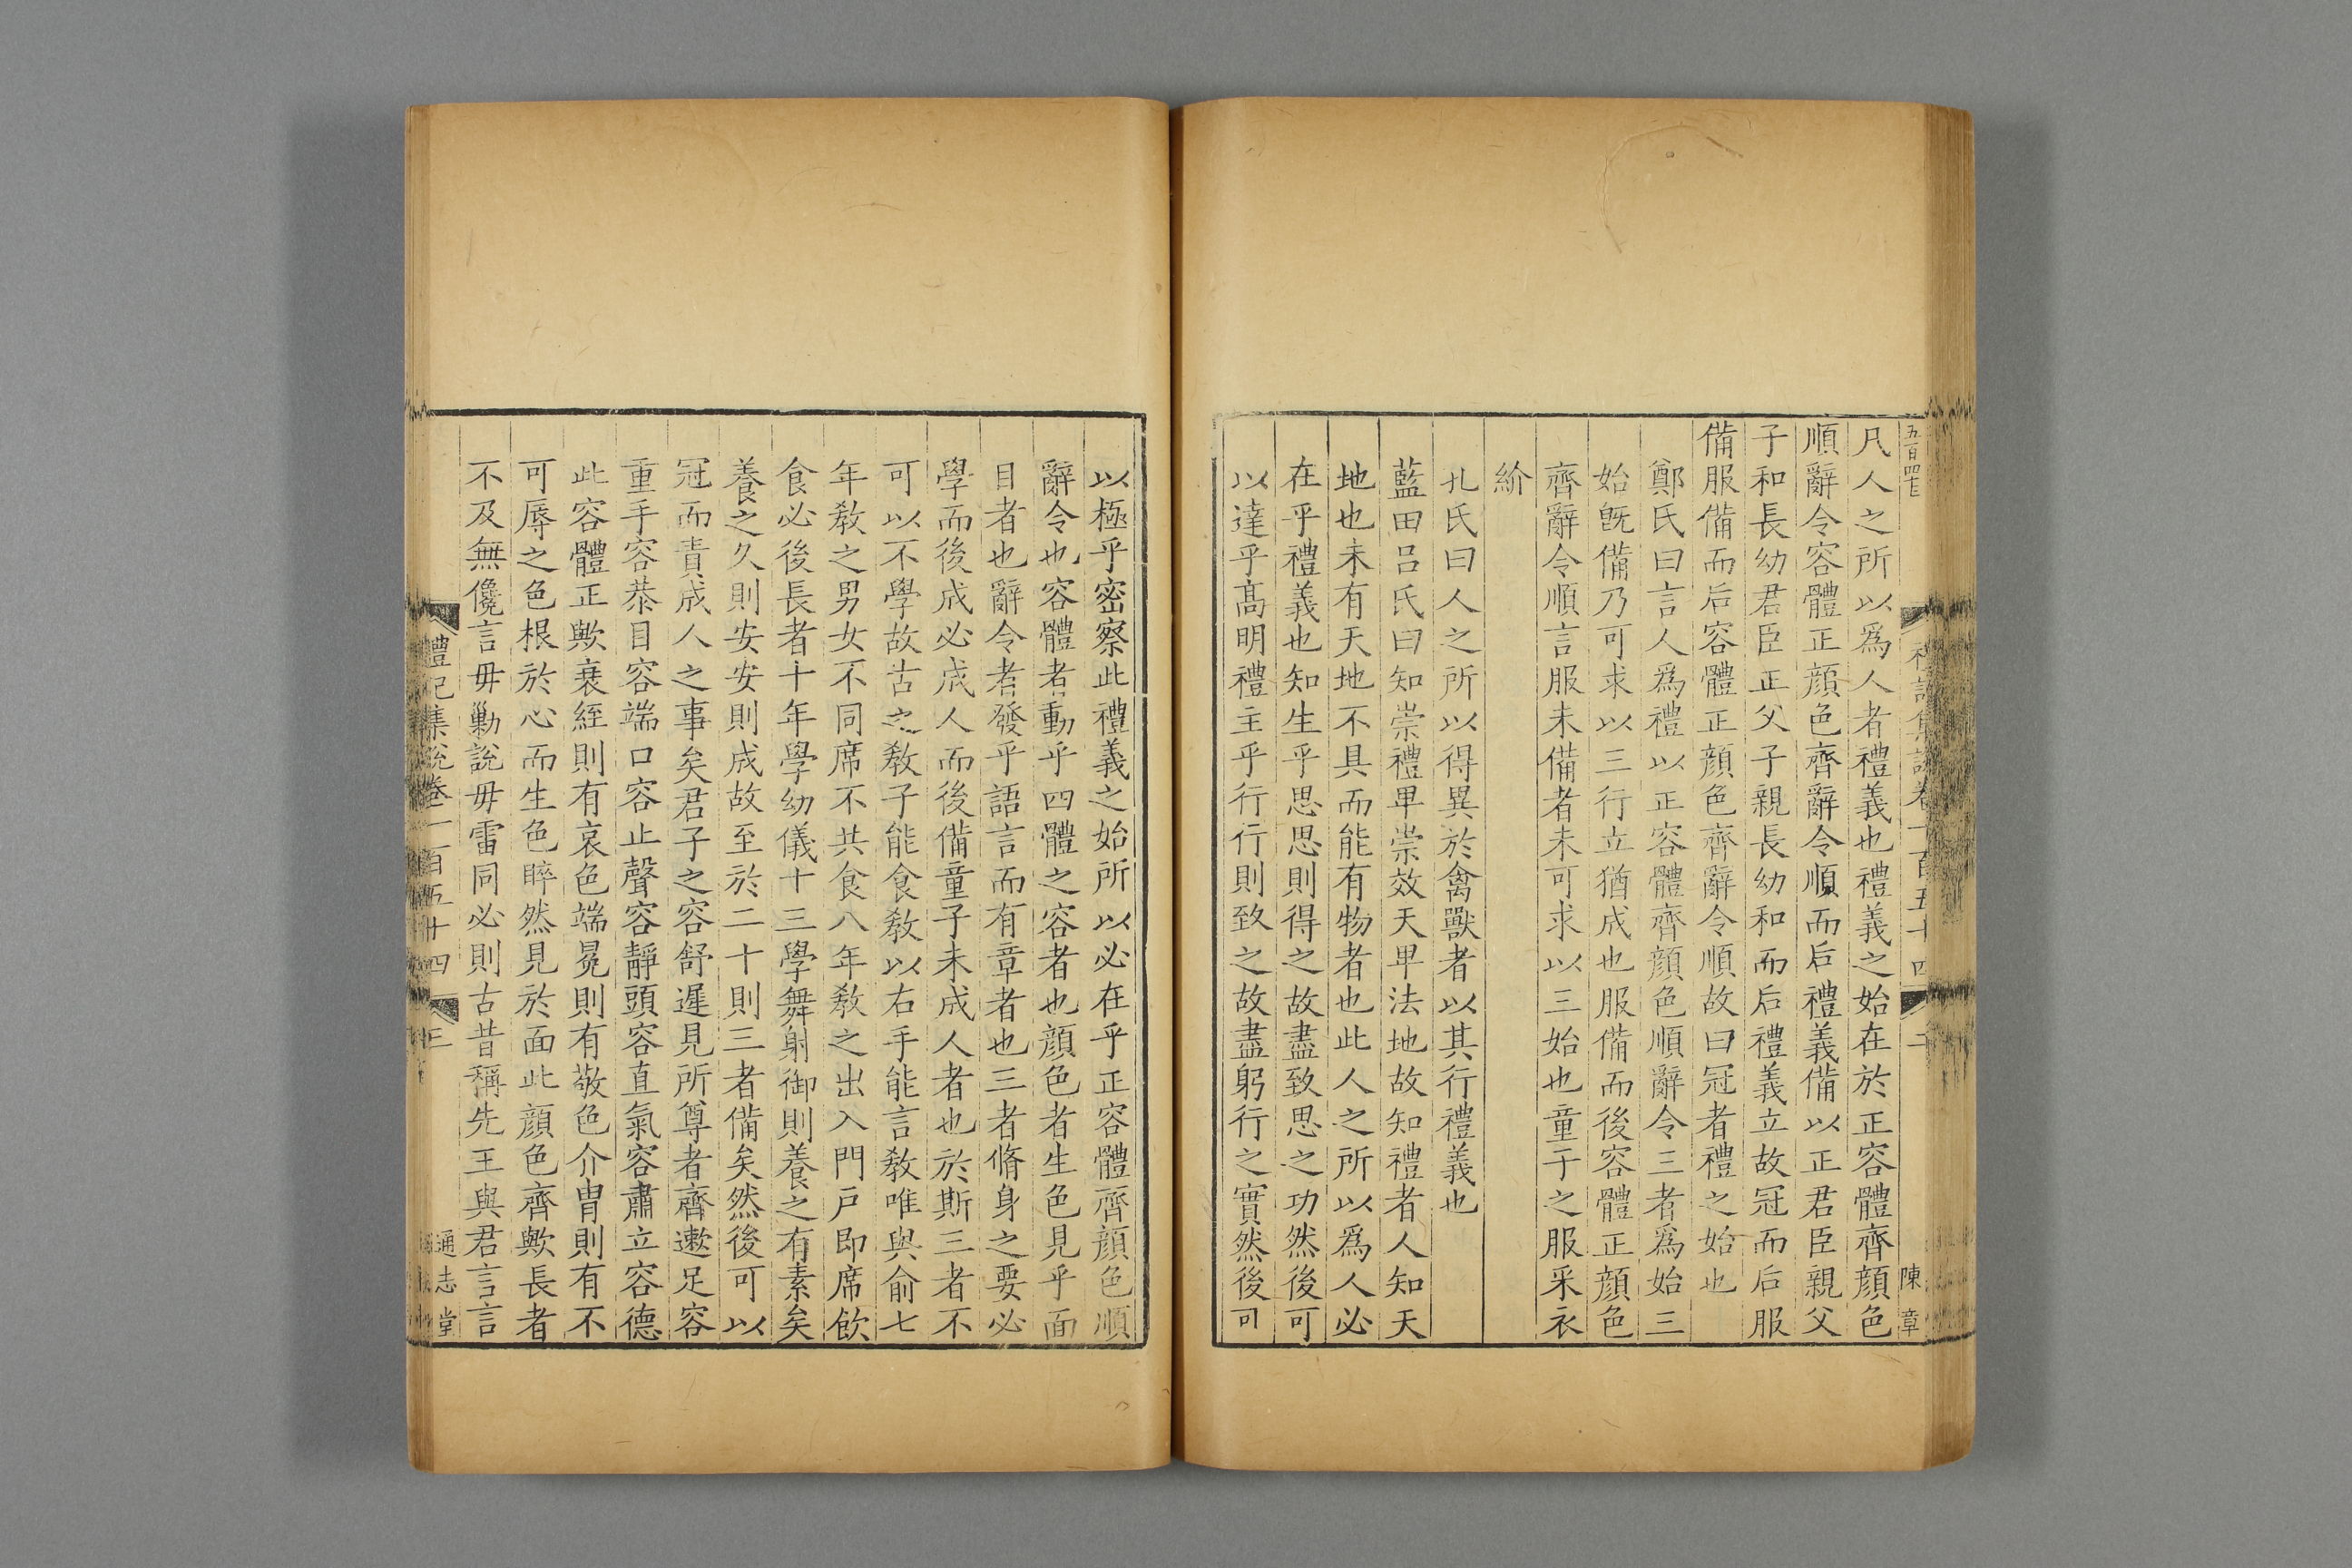 五百四七
禮記集說卷一百五十四
二
陳章
凡人之所以爲人者禮義也禮義之始在於正容體齊顔色
順辭令容體正顔色齊辭令順而后禮義備以正君臣親父
子和長幼君臣正父子親長幼和而后禮義立故冠而后服
備服備而后容體正顔色齊辭令順故曰冠者禮之始也
鄭氏曰言人爲禮以正容體齊顔色順辭令三者爲始三
始旣備乃可求以三行立猶成也服備而後容體正顔色
齊辭令順言服未備者未可求以三始也童子之服采衣
紒
孔氏曰人之所以得異於禽獸者以其行禮義也
藍田呂氏曰知崇禮卑崇效天卑法地故知禮者人知天
地也未有天地不具而能有物者也此人之所以爲人必
在乎禮義也知生乎思思則得之故盡致思之功然後可
以達乎高明禮主乎行行則致之故盡躬行之實然後可
以極乎密察此禮義之始所以必在乎正容體齊顔色順
辭令也容體者動乎四體之容者也顔色者生色見乎面
目者也辭令者發乎語言而有章者也三者脩身之要必
學而後成必成人而後備童子未成人者也於斯三者不
可以不學故古之敎子能食敎以右手能言敎唯與俞七
年敎之男女不同席不共食八年敎之出入門戶即席飲
食必後長者十年學幼儀十三學舞射御則養之有素矣
養之久則安安則成故至於二十則三者備矣然後可以
冠而責成人之事矣君子之容舒遲見所尊者齊遬足容
重手容恭目容端口容止聲容靜頭容直氣容肅立容德
此容體正歟衰絰則有哀色端冕則有敬色介胄則有不
可辱之色根於心而生色睟然見於面此顔色齊歟長者
不及無儳言毋勦說毋雷同必則古昔稱先王與君言言
禮記集說卷一百五十四
三
通志堂